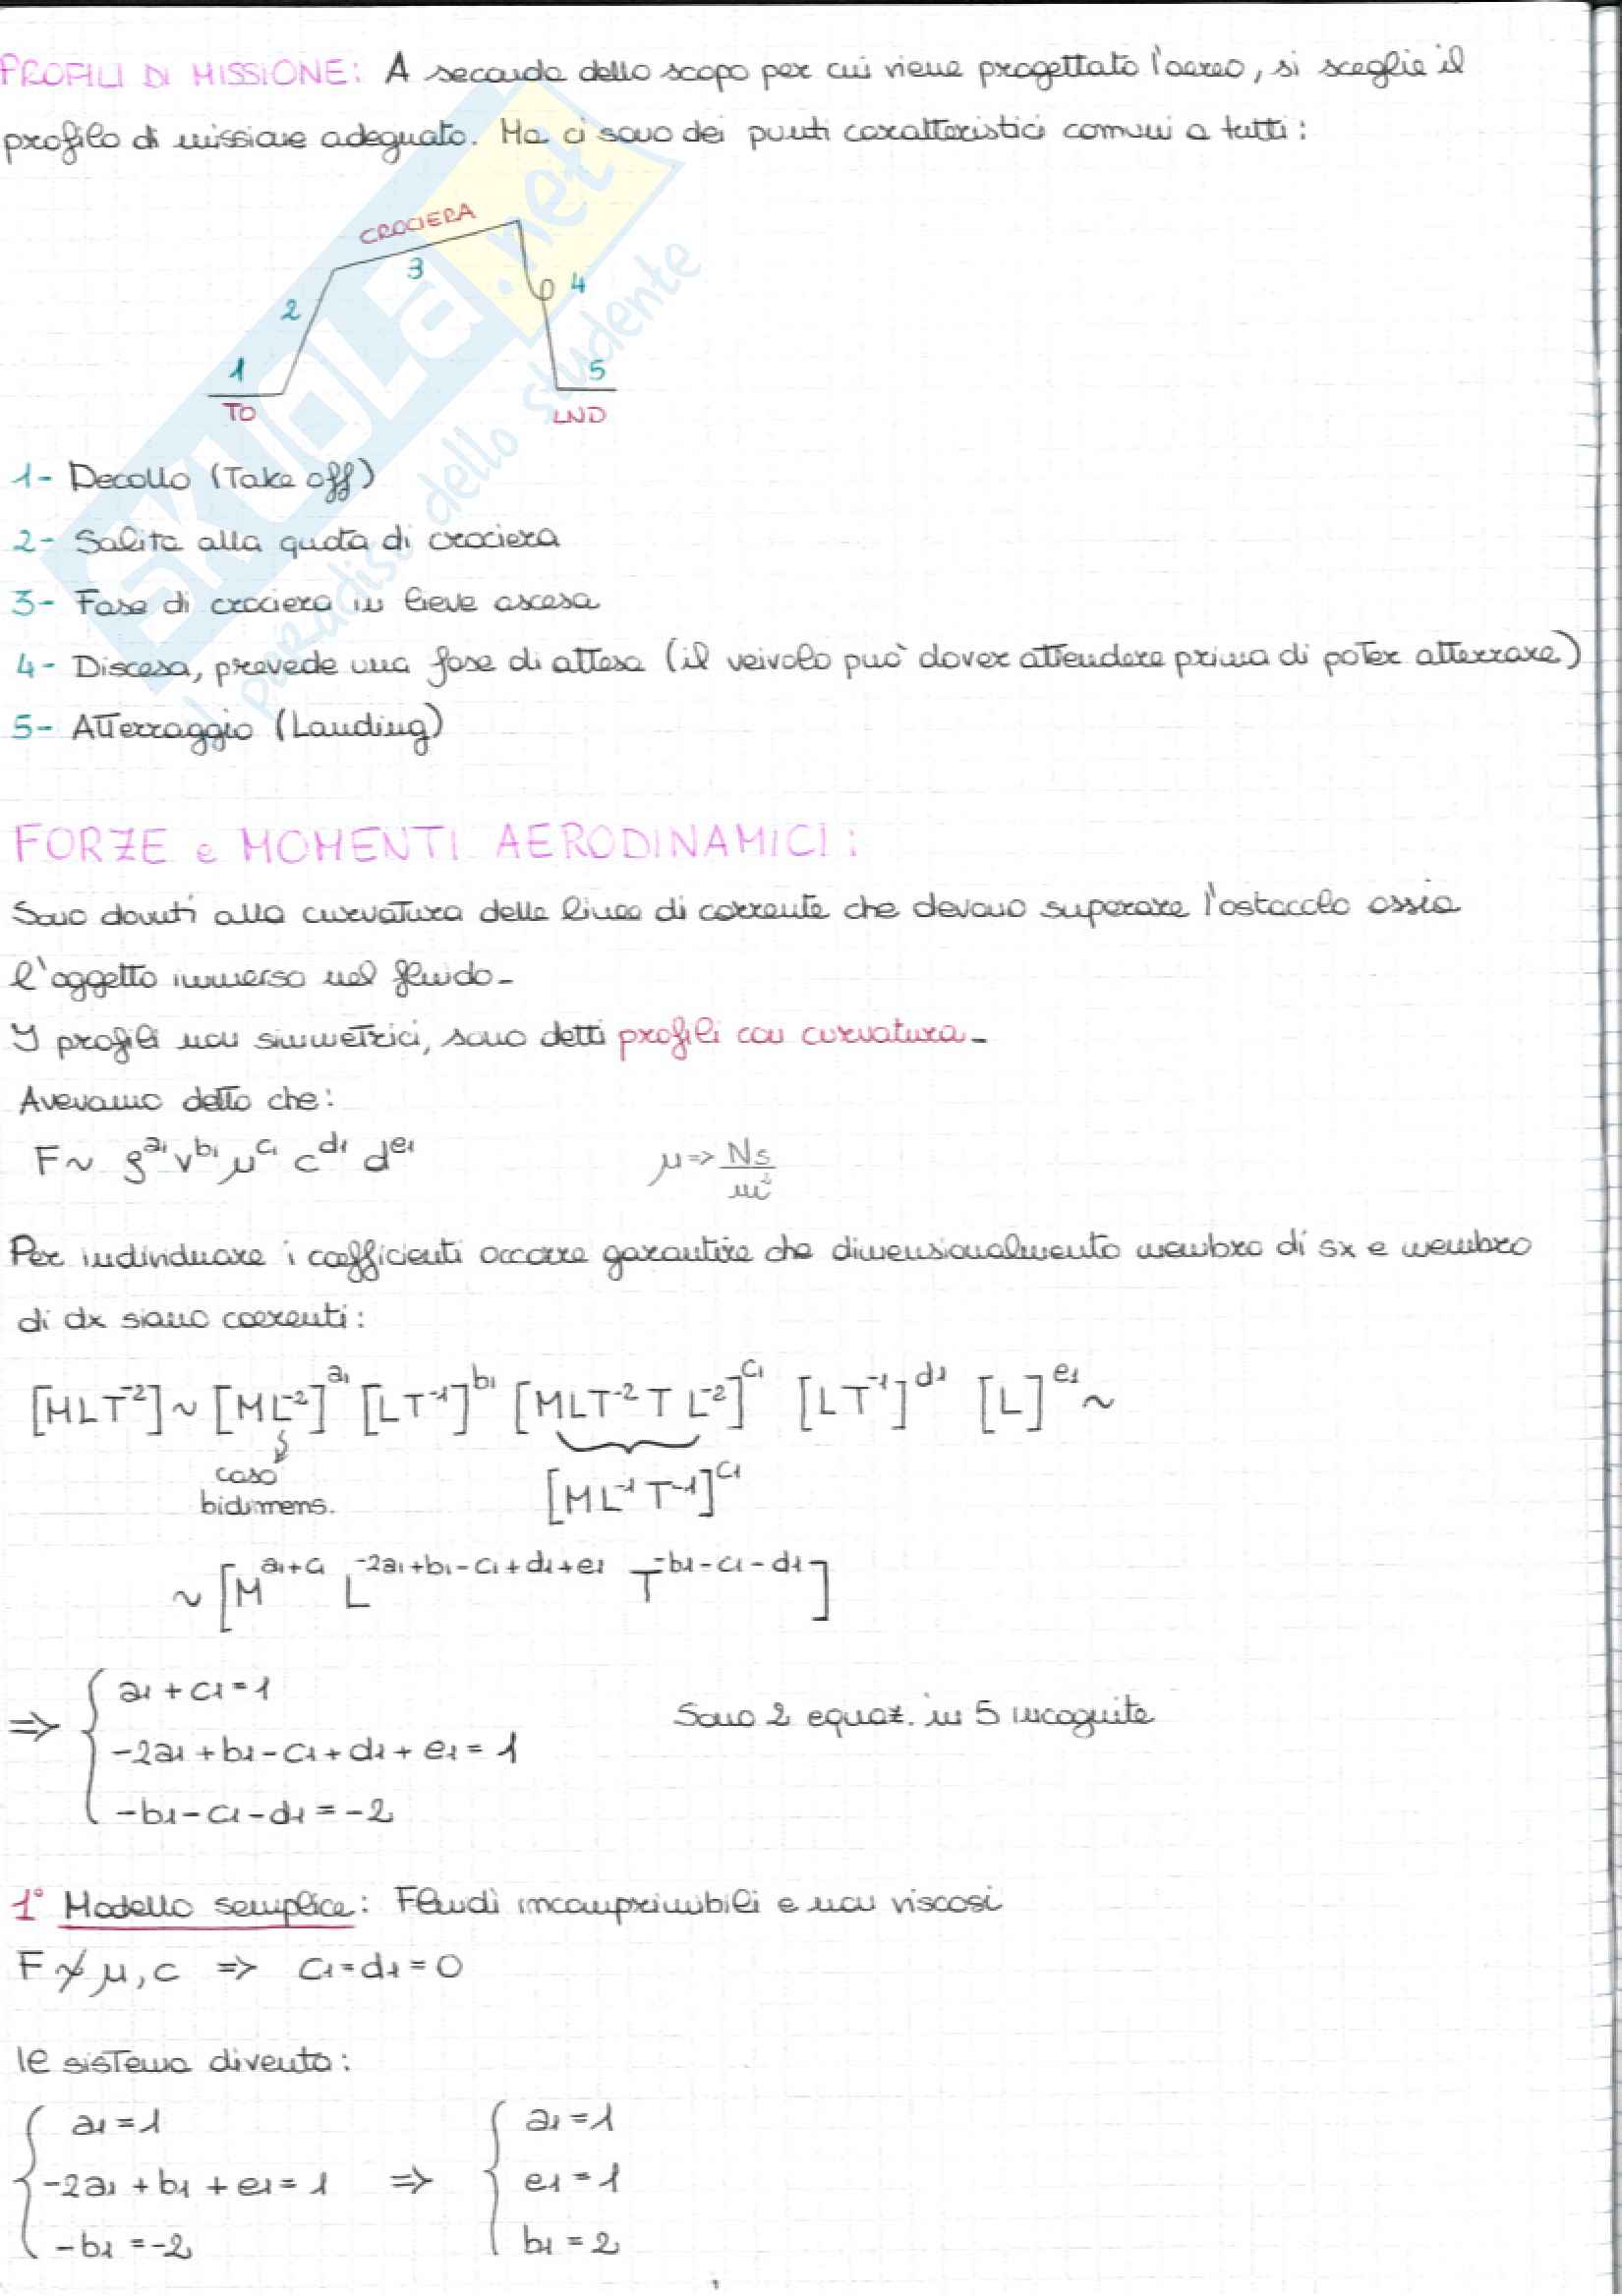 PROFILI DI MISSIONE: A seconda dello scopo per cui viene progettato l'aereo, si sceglie il
profilo di missione adeguato. Ma ci sono dei punti caratteristici comuni a tutti:
CROCIERA
3
4
2
1
5
TO
LND
1- Decollo (Take off)
2- Salita alla quota di crociera
3- Fase di crociera in lieve ascesa
4- Discesa, prevede una fase di attesa (il veivolo può dover attendere prima di poter atterrare)
5- Atterraggio (Landing)
SKUOLA.net
il paradiso dello studente
FORZE e MOMENTI AERODINAMICI:
Sono dovuti alla curvatura delle linee di corrente che devono superare l'ostacolo ossia
l'oggetto immerso nel fluido-
I profili non simmetrici, sono detti profili con curvatura-
Avevamo detto che:
F ~ ρ^a₁ v^b₁ μ^c₁ c^d₁ d^e₁    μ => Ns/m²
Per individuare i coefficienti occorre garantire che dimensionalmente membro di sx e membro
di dx siano coerenti:
[MLT⁻²] ~ [ML⁻²]^a₁ [LT⁻¹]^b₁ [MLT⁻² T L⁻²]^c₁ [LT⁻¹]^d₁ [L]^e₁ ~
caso
bidimens.
[ML⁻¹T⁻¹]^c₁
~ [M^a₁+c₁ L^-2a₁+b₁-c₁+d₁+e₁ T^-b₁-c₁-d₁]
a₁ + c₁ = 1
=> { -2a₁ + b₁ - c₁ + d₁ + e₁ = 1    Sono 2 equaz. in 5 incognite
-b₁ - c₁ - d₁ = -2
1° Modello semplice: Fluidi incomprimibili e non viscosi
F ≁ μ, c => c₁ = d₁ = 0
Il sistema diventa:
a₁ = 1    a₁ = 1
-2a₁ + b₁ + e₁ = 1 => e₁ = 1
-b₁ = -2    b₁ = 2